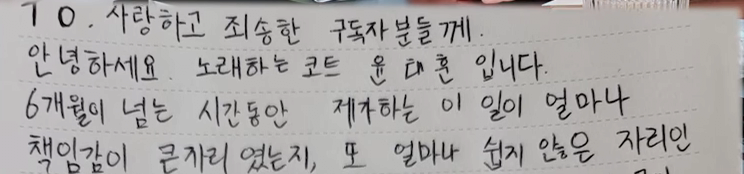 TO. 사랑하고 죄송한 구독자분들께.
안녕하세요. 노래하는 코트 윤태훈 입니다.
6개월이 넘는 시간동안 제가하는 이 일이 얼마나
책임감이 큰자리 였는지, 또 얼마나 쉽지 않은 자리인